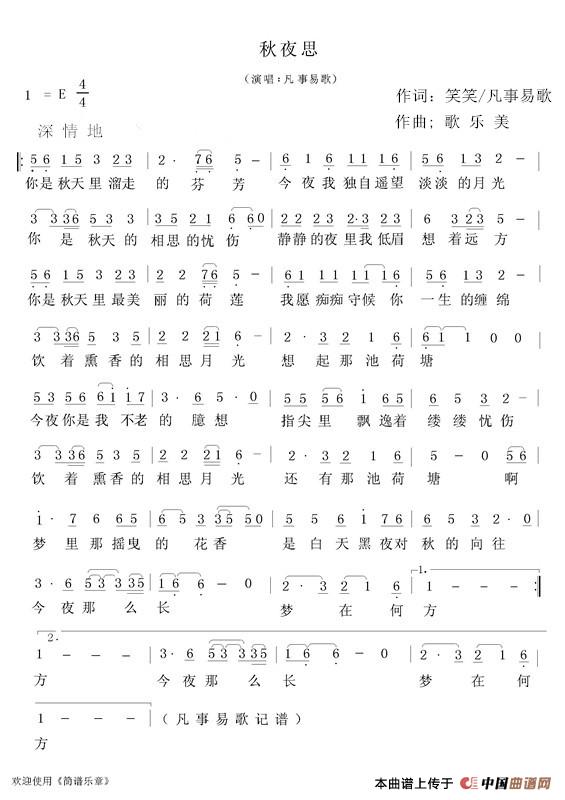 秋夜思
（演唱：凡事易歌）
1 = E 4/4
作词：笑笑/凡事易歌
作曲；歌乐美
深情地
5 6 1 5 2 3 | 2· 7 6 5 - | 6 1 6 1 1 1 1 6 | 5 6 1 3 2 - |
你是秋天里溜走 的 芬 芳 今夜我独自遥望 淡淡的月光
3 3 3 3 6 5 3 3 | 3 5 2 1 6 6 0 | 2 2 2 3 2· 3 2 2 | 6 3 2 3 5 - |
你是秋天的 相思的忧伤 静静的夜里我低眉 想着远方
5 6 1 5 1 2 3 | 2 2 2 7 6 5 - | 6 1 1 6 1 1 1 1 1 6 | 5 6 1 3 2 - |
你是秋天里最美 丽的荷莲 我愿痴痴守候你 一生的缠绵
3 3 3 3 6 5 3 5 | 2 2 2 2 1 6 - | 3· 3 2 1 6 | 6 1 1 0 0 |
饮着熏香的 相思月光 想起那池荷 塘
5 3 5 3 5 6 1 1 7 | 3· 6 5· 0 | 5 5 5 6 1 6 5 | 6 5 6 3 5 - |
今夜你是我不老 的臆想 指尖里飘逸着 缕缕忧伤
3 3 3 3 6 5 3 5 | 2 2 2 2 1 6 - | 2· 3 2 1 6 | 1 - 0 5 6 |
饮着熏香的 相思月光 还有那池荷 塘 啊
1· 7 6 6 5 | 6 5 3 3 5 5 0 | 5 5 6 1 7 6 | 6 5 3 2· 0 |
梦里那摇曳 的花香 是白天黑夜对 秋的向往
3· 6 5 3 3 3 3 5 | 1 6 6 - 0 | 2· 3 2 1 6 | 1. 1 - - - :|
今夜那么 长 梦在何 方
2. 1 - - - | 3· 6 5 3 3 3 3 5 | 1 6 6 - 0 | 2· 3 2 1 6 |
方 今夜那么 长 梦在何
1 - - - |（凡事易歌记谱）
方
欢迎使用《简谱乐章》
本曲谱上传于 中国曲谱网